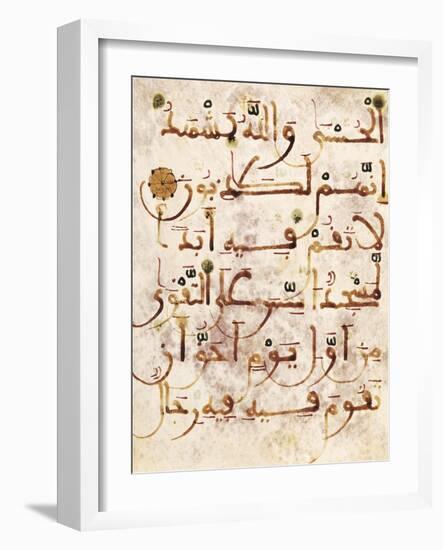 الحسنى والله يشهد
انهم لكذبون
لا تقم فيه ابدا
لمسجد اسس على التقوى
من اول يوم احق ان
تقوم فيه فيه رجال